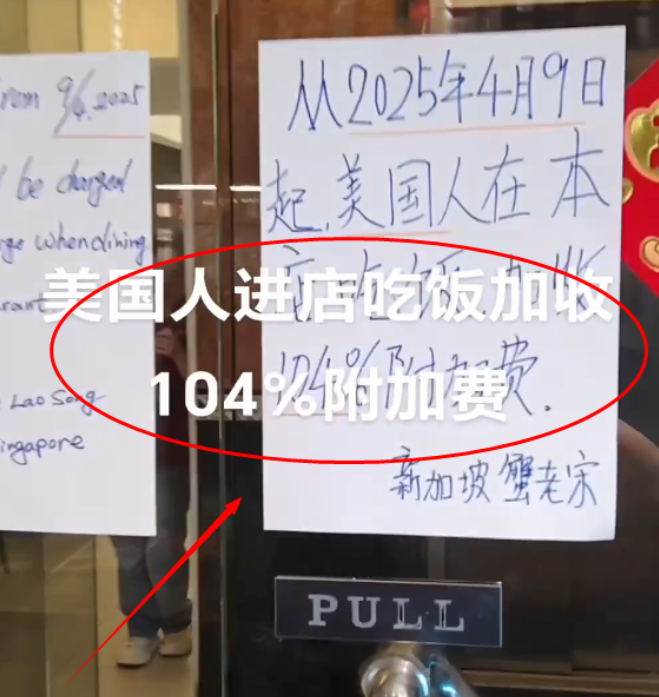 rom 9/4.2025
be charged
ge when dining
rant
Lao Song
ingapore
从2025年4月9日
起,美国人在本
店吃饭加收
104%附加费.
新加坡 蟹老宋
美国人进店吃饭加收
104%附加费
PULL